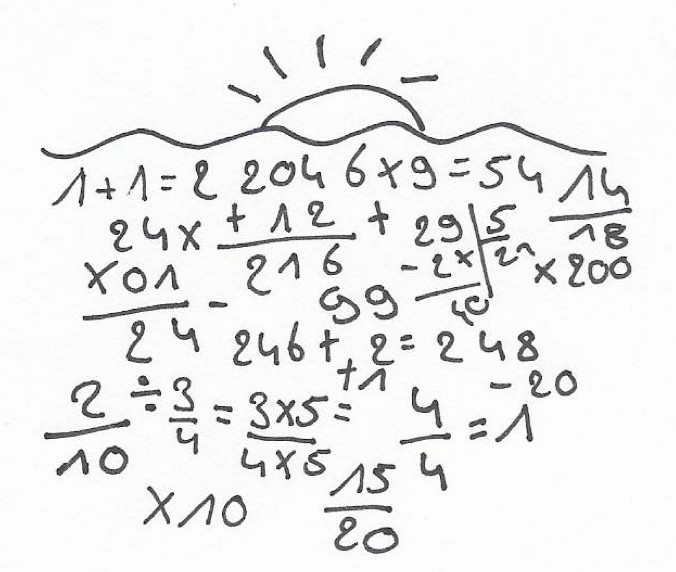 1+1=2 204 6×9=54 14/18
24× +12/216 + 29 5
×01/24 - 99 -2× 21 ×200
40
246+2=248
+1 -20
2/10 ÷ 3/4 = 3×5/4×5 = 4/4 =1
×10 15/20